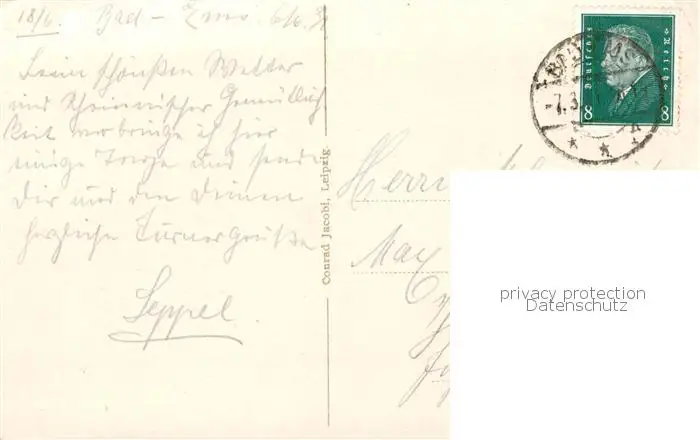 18/6. Bad - Ems 6/6.
Beim schönsten Wetter
und Rheinischer Gemütlich
keit verbringe ich hier
einige Tage und sende
Dir und den Deinen
herzliche Turnergrüße
Seppel.
Conrad Jacobi, Leipzig.
Deutsches Reich
8 8
Herrn
Max
privacy protection
Datenschutz